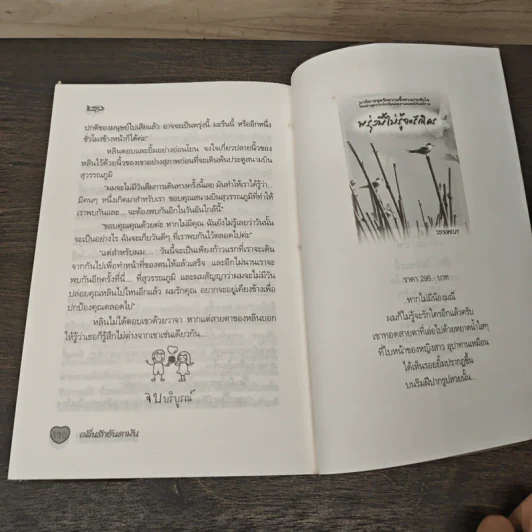 ปกติของมนุษย์ไปเสียแล้ว อาจจะเป็นพรุ่งนี้ มะรืนนี้ หรืออีกหนึ่ง
ชั่วโมงข้างหน้าก็ได้ค่ะ"
หลินตอบและยิ้มอย่างอ่อนโยน จงใจเกี่ยวปลายนิ้วของ
หลินไว้ด้วยนิ้วของเขาอย่างสุภาพก่อนที่จะเดินพ้นประตูสนามบิน
สุวรรณภูมิ
"ผมจะไม่มีวันลืมการเดินทางครั้งนี้เลย มันทำให้เราได้รู้ว่า...
มีคนๆ หนึ่งเกิดมาสำหรับเรา ขอบคุณสนามบินสุวรรณภูมิที่ทำให้
เราพบกันและ... จะต้องพบกันอีกในวันอันใกล้นี้"
"ขอบคุณคุณด้วยค่ะ หากไม่มีคุณ ฉันยังไม่รู้เลยว่าวันนั้น
จะเป็นอย่างไร ฉันจะเก็บวันดีๆ ที่เราพบกันไว้ตลอดไปค่ะ"
"แต่สำหรับผม... วันนี้จะเป็นเพียงก้าวแรกที่เราจะเดิน
จากกันไปเพื่อทำหน้าที่ของตนให้แล้วเสร็จ และอีกไม่นานเราจะ
พบกันอีกครั้งที่นี่... ที่สุวรรณภูมิ และผมสัญญาว่าผมจะไม่มีวัน
ปล่อยคุณหลินไปไหนอีกแล้ว ผมรักคุณ อยากจะอยู่เคียงข้างเพื่อ
ปกป้องคุณตลอดไป"
หลินไม่ได้ตอบเขาด้วยวาจา หากแต่สายตาของหลินบอก
ให้รู้ว่าเธอก็รู้สึกไม่ต่างจากเขาเช่นเดียวกัน...
จบบริบูรณ์
คลื่นรักอันดามัน
พรุ่งนี้ไม่รู้จะมีใคร
ราคา 295.- บาท
...หากไม่มีน้องมณี
ผมก็ไม่รู้จะรักใครอีกแล้วครับ
เขาทอดสายตาที่เอ่อไปด้วยหยาดน้ำใสๆ
ที่ใบหน้าของหญิงสาว อุปาทานเหมือน
ได้เห็นรอยยิ้มปรากฏขึ้น
บนริมฝีปากรูปสวยนั้น...